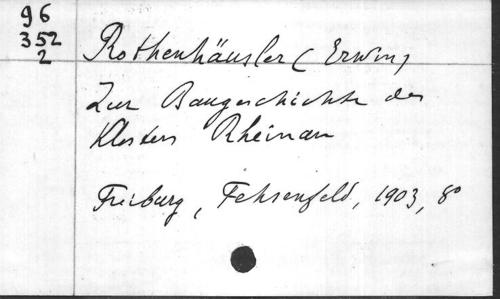 96
352
2
Rothenhäusler (Erwin)
Zur Baugeschichte des
Klosters Rheinau
Freiburg, Fehsenfeld, 1903, 8°